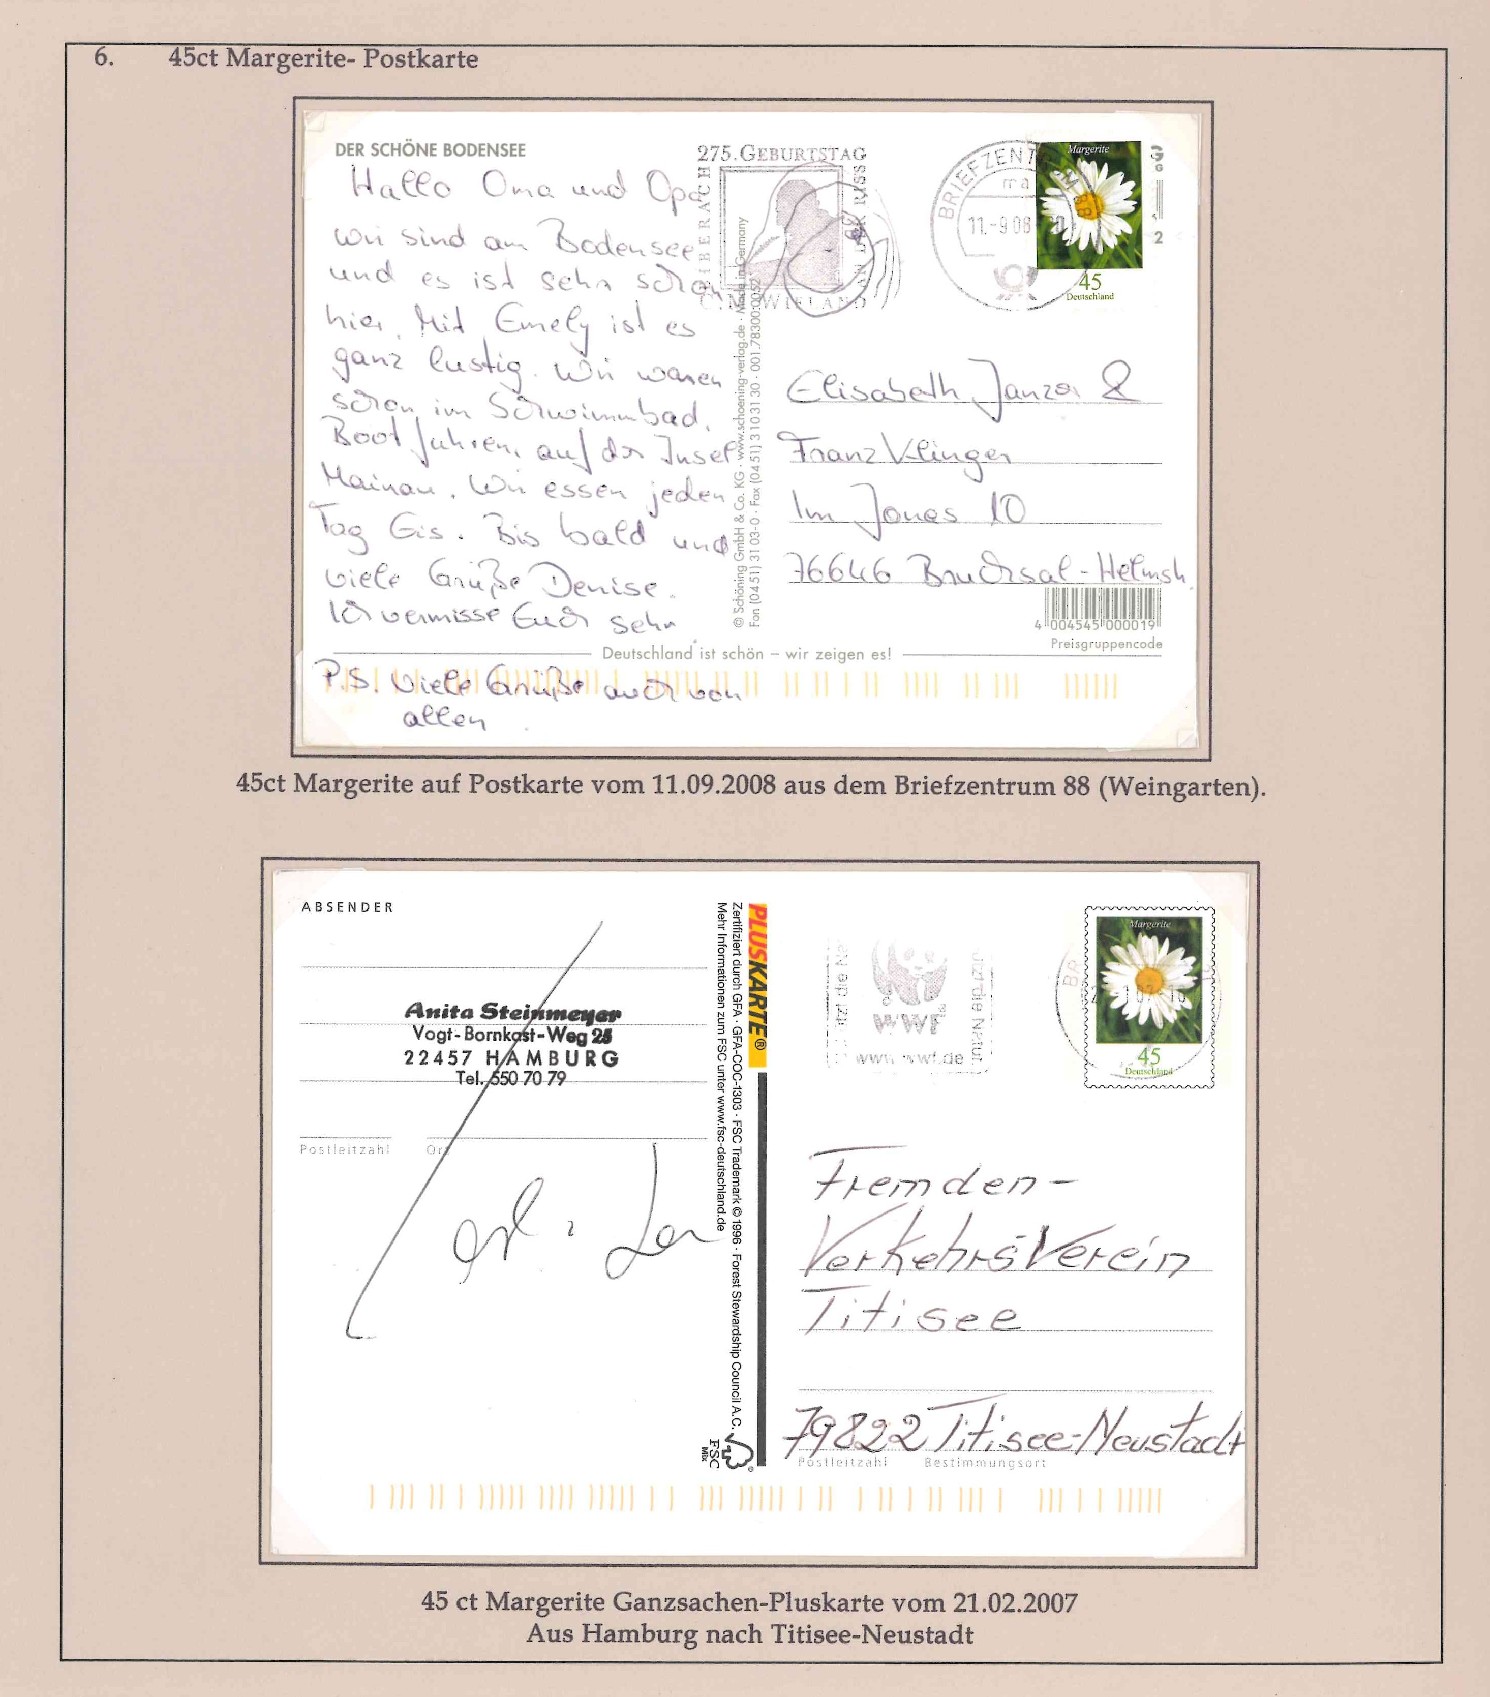 6. 45ct Margerite- Postkarte
DER SCHÖNE BODENSEE
Hallo Oma und Opa
wir sind am Bodensee
und es ist sehr schön
hier. Mit Emely ist es
ganz lustig. Wir waren
schon im Schwimmbad,
Boot fahren, auf der Insel
Mainau. Wir essen jeden
Tag Eis. Bis bald und
viele Grüße Denise.
Ich vermisse Euch sehr
P.S. Viele Grüße auch von
allen
275. GEBURTSTAG
BIBERACH
AN DER RISS
C. M. WIELAND
BRIEFZENTRUM 88
ma
11.-9.08
Margerite
45
Deutschland
© Schöning GmbH & Co. KG · www.schoening-verlag.de · Made in Germany
Fon (0451) 31 03-0 · Fax (0451) 3103130 ·
Elisabeth Janzer &
Franz Klinger
Im Jonas 10
76646 Bruchsal-Helmsh.
4 004545 000019
Preisgruppencode
Deutschland ist schön – wir zeigen es!
45ct Margerite auf Postkarte vom 11.09.2008 aus dem Briefzentrum 88 (Weingarten).
ABSENDER
Anita Steinmeyer
Vogt-Bornkast-Weg 25
22457 HAMBURG
Tel. 550 70 79
Postleitzahl Ort
PLUSKARTE®
Zertifiziert durch GFA · GFA-COC-1303 · FSC Trademark © 1996 · Forest Stewardship Council A.C.
Mehr Informationen zum FSC unter www.fsc-deutschland.de
FSC
Mix
WWF
www.wwf.de
Margerite
45
Deutschland
Fremden-
Verkehrsverein
Titisee
79822 Titisee-Neustadt
Postleitzahl Bestimmungsort
45 ct Margerite Ganzsachen-Pluskarte vom 21.02.2007
Aus Hamburg nach Titisee-Neustadt